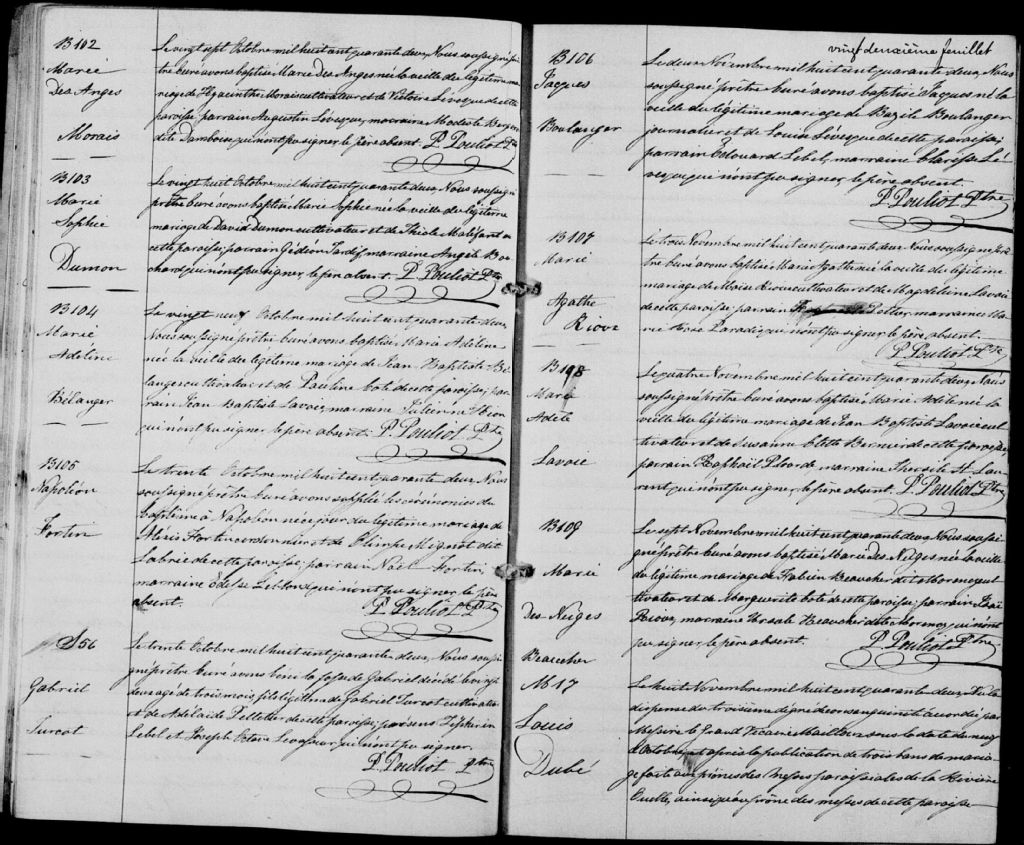 B102
Marie
Des Anges
Morais
Le vingt sept Octobre mil huit cent quarante deux, Nous soussigné prê
tre curé avons baptisé Marie Des Anges née la veille du légitime ma
riage de Hyacinthe Morais cultivateur et de Victoire Lévesque de cette
paroisse parrain Augustin Lévesque, marraine Modeste Bergeron
dite Damboise qui n'ont pu signer, le père absent. P. Pouliot Ptre
B103
Marie
Sophie
Dumon
Le vingt huit Octobre mil huit cent quarante deux Nous soussigné
prêtre curé avons baptisé Marie Sophie née la veille du légitime
mariage de David Dumon cultivateur et de Thècle Malifant de
cette paroisse; parrain Gédéon Tardif, marraine Angèle Bou
chard qui n'ont pu signer, le père absent. P. Pouliot Ptre
B104
Marie
Adéline
Bélanger
Le vingt neuf Octobre mil huit cent quarante deux
Nous soussigné prêtre curé avons baptisé Marie Adéline
née la veille du légitime mariage de Jean Baptiste Bé
langer cultivateur et de Pauline Coté de cette paroisse, par
rain Jean Baptiste Lavoie, marraine Julienne
qui n'ont pu signer, le père absent. P. Pouliot Ptre
B105
Napoléon
Fortin
Le trente Octobre mil huit cent quarante deux Nous
soussigné prêtre curé avons supplié les cérémonies du
baptême à Napoléon né ce jour du légitime mariage de
Alexis Fortin cordonnier et de Olimpe Mignot dit
Labrie de cette paroisse; parrain Noël Fortin,
marraine Edesse Leblond qui n'ont pu signer, le père
absent.
P. Pouliot Ptre
S56
Gabriel
Turcot
Le trente Octobre mil huit cent quarante deux, Nous soussi
gné prêtre curé avons béni la fosse de Gabriel décédé
deux agé de trois mois fils légitime de Gabriel Turcot cultivateur
et de Adélaïde Pelletier de cette paroisse; présens Zéphirin
Lebel et Joseph Octave Levasseur qui n'ont pu signer.
P. Pouliot Ptre
vingt deuxième feuillet
B106
Jacques
Boulanger
Le deux Novembre mil huit cent quarante deux, Nous
soussigné prêtre curé avons baptisé Jacques né la
veille du légitime mariage de Bazile Boulanger
journalier et de Louise Lévesque de cette paroisse;
parrain Edouard Lebel, marraine Clarisse Lé
vesque qui n'ont pu signer, le père absent.
P. Pouliot Ptre
B107
Marie
Agathe
Riove
Le trois Novembre mil huit cent quarante deux Nous soussigné prê
tre curé avons baptisé Marie Agathe née la veille du légitime
mariage de Moïse Riove cultivateur et de Magdeleine Lavoie
de cette paroisse parrain Potter, marraine Ma
rie Paradis qui n'ont pu signer, le père absent.
P. Pouliot Ptre
B108
Marie
Adèle
Lavoie
Le quatre Novembre mil huit cent quarante deux Nous
soussigné prêtre curé avons baptisé Marie Adèle née la
veille du légitime mariage de Jean Baptiste Lavoie cul
tivateur et de Susanne Colette Bernier de cette paroisse,
parrain Raphaël Plourde marraine Thersile St Lau
rent, qui n'ont pu signer, le père absent. P. Pouliot Ptre
B109
Marie
des Neiges
Beaucher
Le sept Novembre mil huit cent quarante deux Nous soussi
gné prêtre curé avons baptisé Marie Des Neiges née la veille
du légitime mariage de Fabien Beaucher dit Morency cul
tivateur et de Marguerite Coté de cette paroisse; parrain Isaïe
Riove, marraine Ursule Beaucher dite Morency qui n'ont
pu signer, le père absent. P. Pouliot Ptre
M17
Louis
Dubé
Le huit Novembre mil huit cent quarante deux, Vu la
dispense du troisième dégré de consanguinité accordée par
Messire le Grand Vicaire Mailloux sous la date du neuf
d'Octobre et après la publication de trois bans de maria
ge faite aux prônes des Messes paroissiales de la Rivière
Ouelle, ainsi qu'au prône des messes de cette paroisse